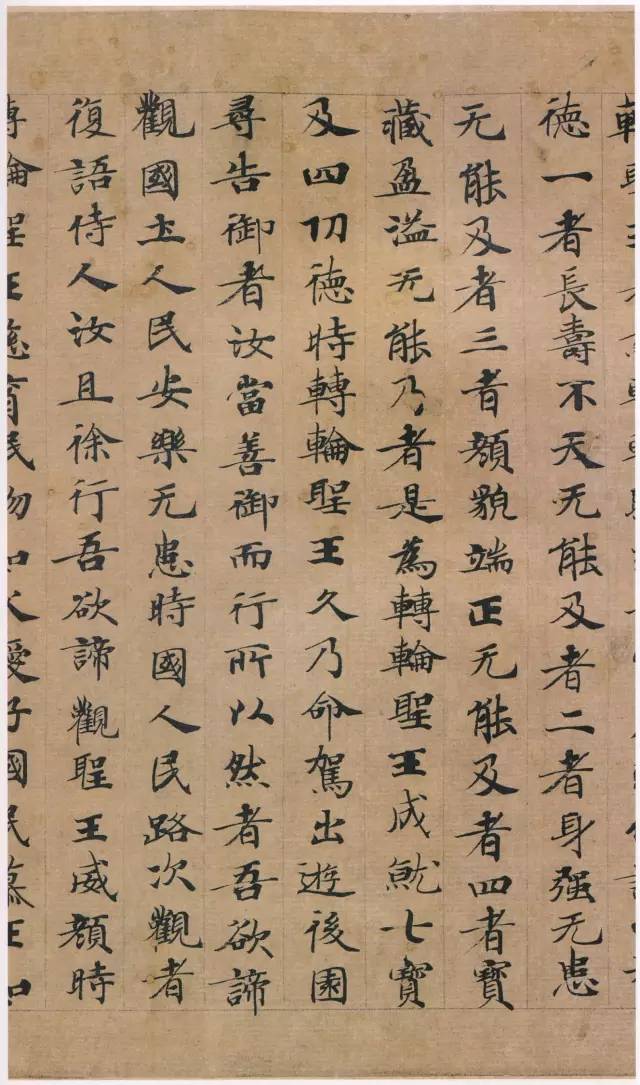 徳一者長壽不夭无能及者二者身强无患
无能及者三者顏貌端正无能及者四者寶
藏盈溢无能乃者是為轉輪聖王成就七寶
及四功徳時轉輪聖王久乃命駕出遊後園
尋告御者汝當善御而行所以然者吾欲諦
觀國土人民安樂无患時國人民路次觀者
復語侍人汝且徐行吾欲諦觀聖王威顏時
轉輪聖王慈育民物如父愛子國民慕王如